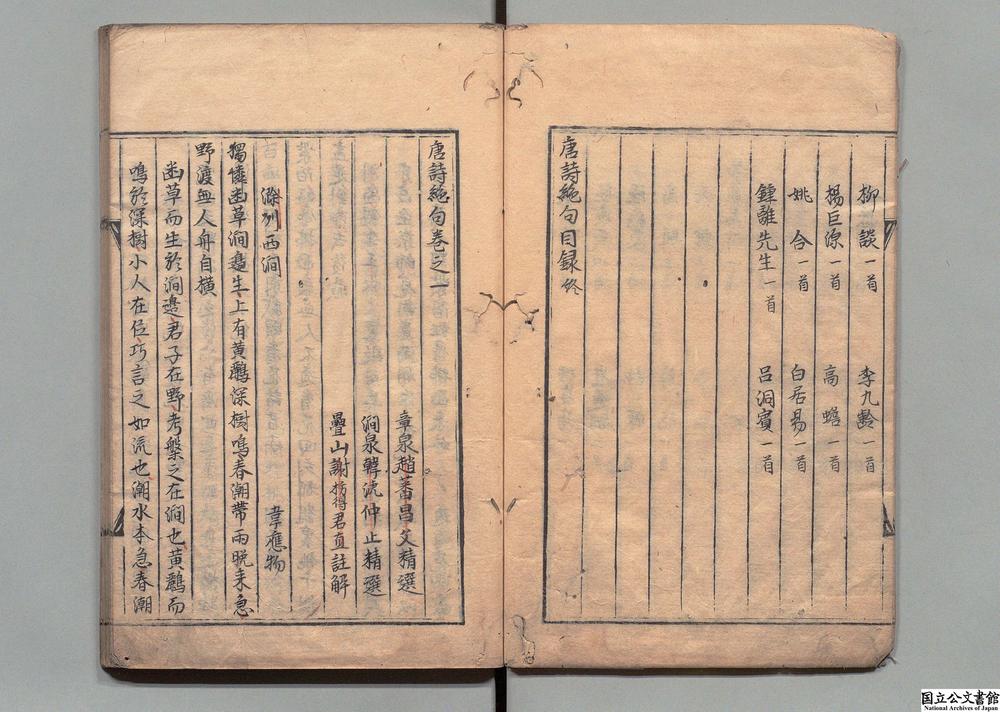 柳談一首 李九齡一首
楊巨源一首 高蟾一首
姚合一首 白居易一首
鍾離先生一首 呂洞賓一首
唐詩絶句目録終
唐詩絶句巻之一
章泉趙蕃昌父精選
澗泉韓淲仲止精選
疊山謝枋得君直註解
滁州西澗 韋應物
獨憐幽草澗邊生上有黄鸝深樹鳴春潮帶雨晚来急
野渡無人舟自横
幽草而生於澗邊君子在野考槃之在澗也黄鸝而
鳴於深樹小人在位巧言之如流也潮水本急春潮
国立公文書館
National Archives of Japan